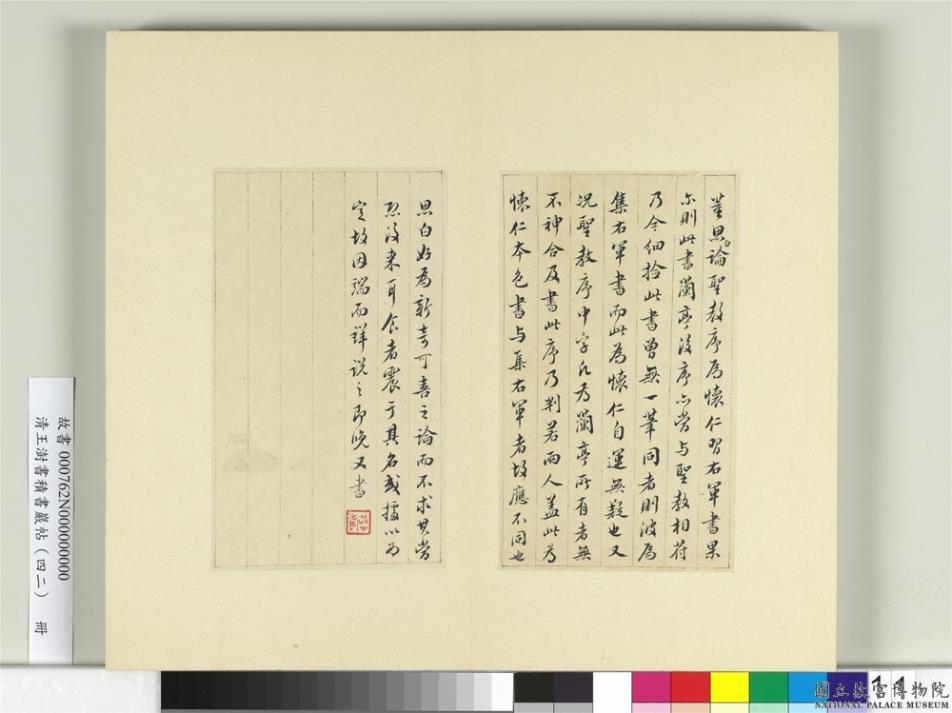 董思白論聖教序為懷仁習右軍書果
尔則此書蘭亭後序亦當与聖教相符
乃今細撿此書曾無一筆同者則彼為
集右軍書而此為懷仁自運無疑也又
況聖教序中字凡為蘭亭所有者無
不神合及書此序乃判若兩人盖此為
懷仁本色書与集右軍者故應不同也
思白好為新奇可喜之論而不求其當
恐後来耳食者震于其名或據以為
定故因端而詳說之即晚又書
故書 000762N000000000
清王澍書積書巖帖（四二） 冊
11
國立故宮博物院
NATIONAL PALACE MUSEUM